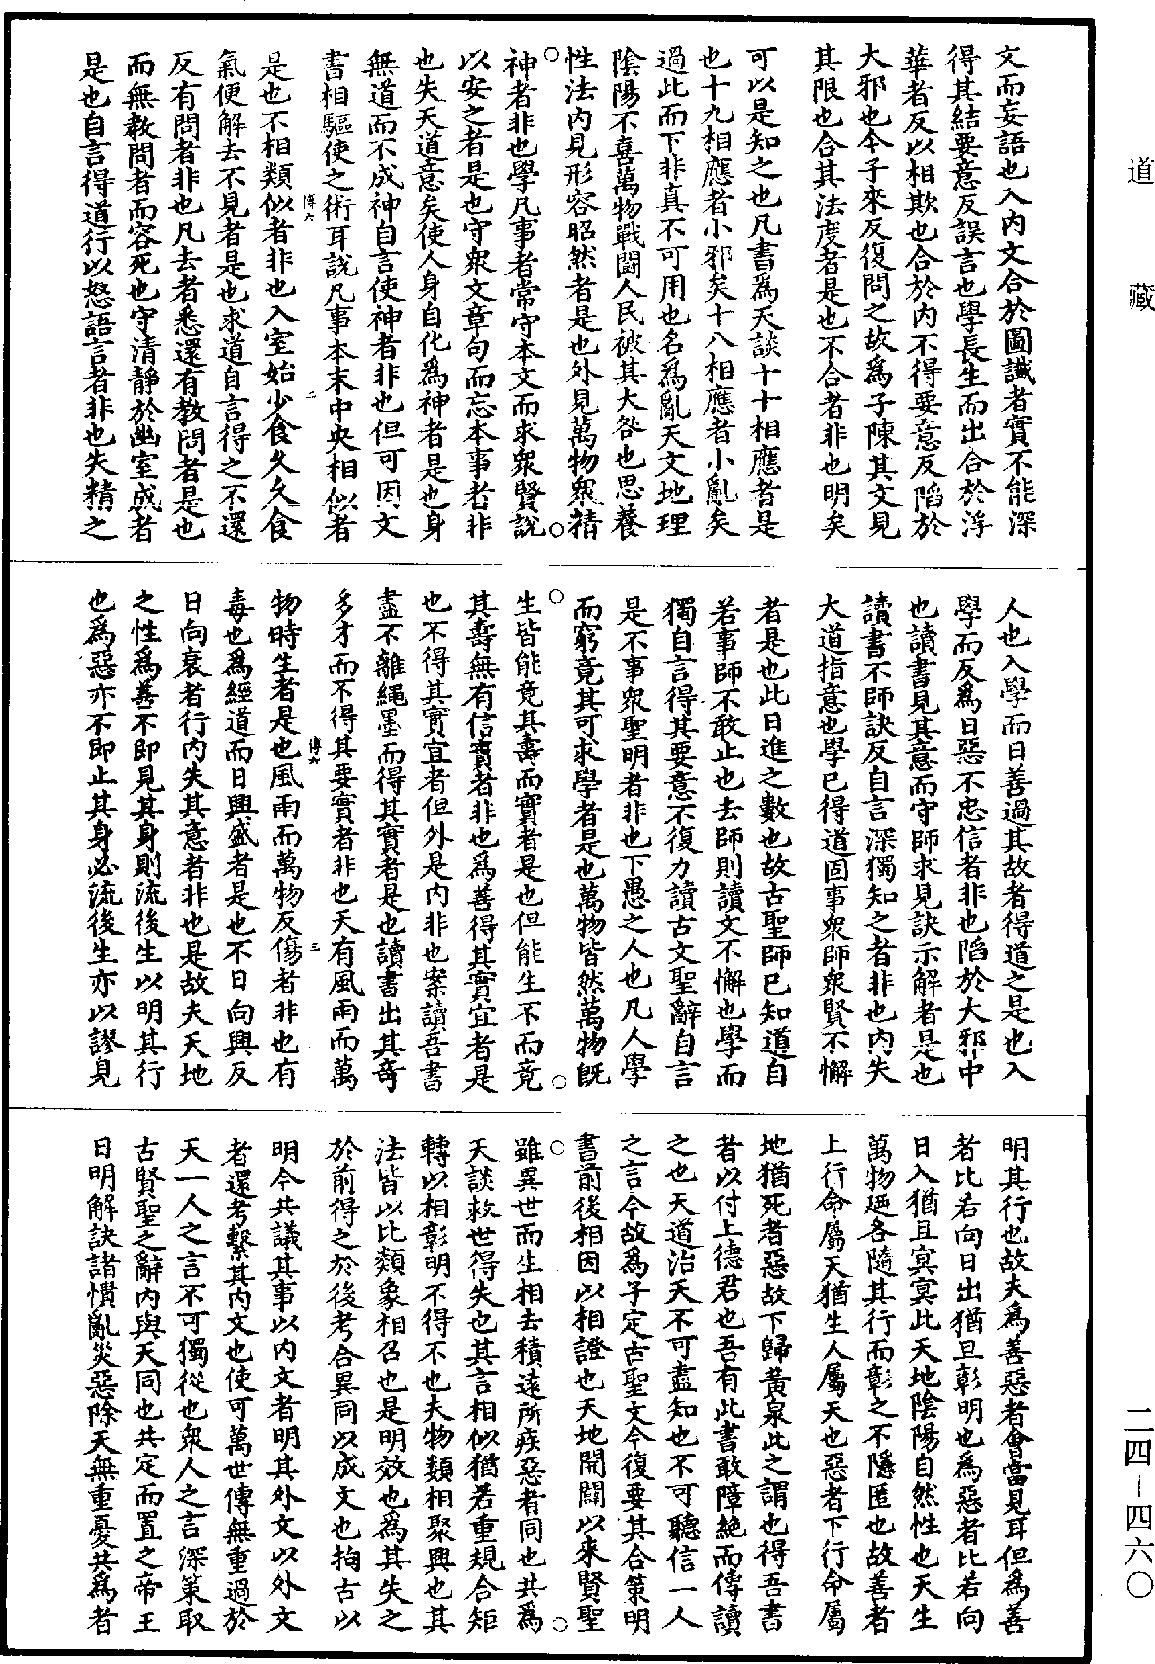 道藏
文而妄語也入內文合於圖讖者實不能深
得其結要意反誤言也學長生而出合於浮
華者反以相欺也合於內不得要意反陷於
大邪也今子來反復問之故為子陳其文見
其限也合其法度者是也不合者非也明矣
可以是知之也凡書為天談十十相應者是
也十九相應者小邪矣十八相應者小亂矣
過此而下非真不可用也名為亂天文地理
陰陽不喜萬物戰鬭人民被其大咎也思養
性法內見形容昭然者是也外見萬物眾精
神者非也學凡事者常守本文而求眾賢說
以安之者是也守眾文章句而忘本事者非
也失天道意矣使人身自化為神者是也身
無道而不成神自言使神者非也但可因文
書相驅使之術耳說凡事本末中央相似者
傅六 二
是也不相類似者非也入室始少食久久食
氣便解去不見者是也求道自言得之不還
反有問者非也凡去者悉還有教問者是也
而無教問者而容死也守清靜於幽室成者
是也自言得道行以怒語言者非也失精之
人也入學而日善過其故者得道之是也入
學而反為日惡不忠信者非也陷於大邪中
也讀書見其意而守師求見訣示解者是也
讀書不師訣反自言深獨知之者非也內失
大道指意也學已得道固事眾師眾賢不懈
者是也此日進之數也故古聖師已知道自
若事師不敢止也去師則讀文不懈也學而
獨自言得其要意不復力讀古文聖辭自言
是不事眾聖明者非也下愚之人也凡人學
而窮竟其可求學者是也萬物皆然萬物旣
生皆能竟其壽而實者是也但能生不而竟
其壽無有信實者非也為善得其實宜者是
也不得其實宜者但外是內非也案讀吾書
盡不離繩墨而得其實者是也讀書出其奇
多才而不得其要實者非也天有風雨而萬
傅六 三
物時生者是也風雨而萬物反傷者非也有
毒也為經道而日興盛者是也不日向興反
日向衰者行內失其意者非也是故夫天地
之性為善不即見其身則流後生以明其行
也為惡亦不即止其身必流後生亦以謬見
明其行也故夫為善惡者會當見耳但為善
者比若向日出猶且彰明也為惡者比若向
日入猶且冥冥此天地陰陽自然性也天生
萬物迺各隨其行而彰之不隱匿也故善者
上行命屬天猶生人屬天也惡者下行命屬
地猶死者惡故下歸黃泉此之謂也得吾書
者以付上德君也吾有此書敢障絕而傳讀
之也天道治天不可盡知也不可聽信一人
之言今故為子定古聖文今復要其合策明
書前後相因以相證也天地開闢以來賢聖
雖異世而生相去積遠所疾惡者同也共為
天談救世得失也其言相似猶若重規合矩
轉以相彰明不得不也夫物類相聚興也其
法皆以比類象相召也是明效也為其失之
於前得之於後考合異同以成文也拘古以
明今共議其事以內文者明其外文以外文
者還考繫其內文也使可萬世傳無重過於
天一人之言不可獨從也眾人之言深策取
古賢聖之辭內與天同也共定而置之帝王
日明解訣諸憒亂災惡除天無重憂共為者
二四－四六〇